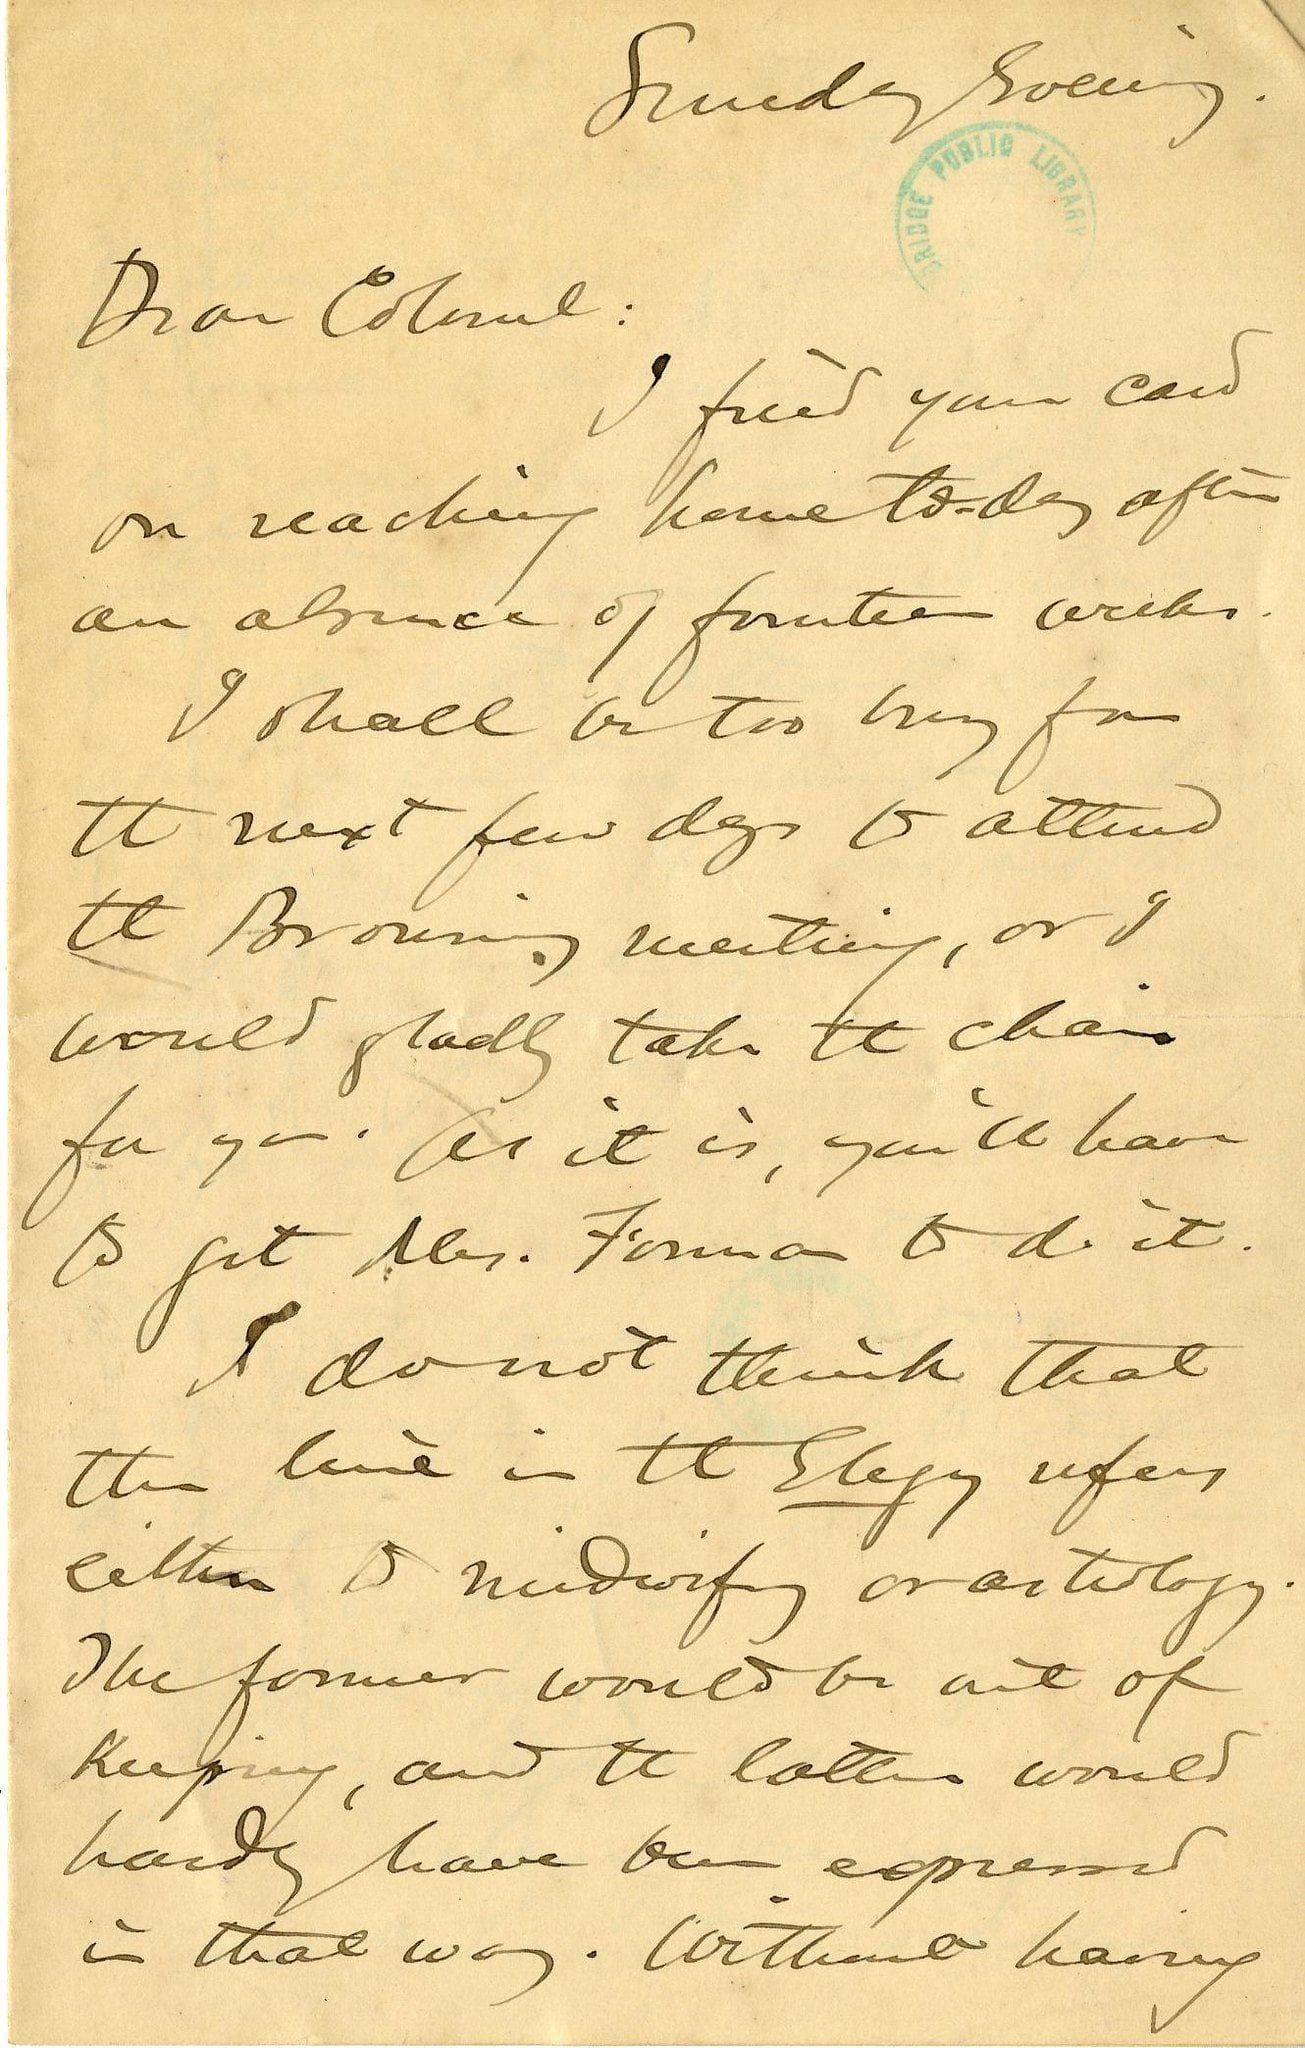 Sunday Evening.
BRIDGE PUBLIC LIBRARY
Dear Colonel:
I find your card
on reaching home to-day after
an absence of fourteen weeks.
I shall be too busy for
the next few days to attend
the Browning meeting, or I
would gladly take the chair
for you. As it is, you'll have
to get Mrs. Forman to do it.
I do not think that
the line in the Elegy refers
either to midwifery or astrology.
The former would be out of
keeping, and the latter would
hardly have been expressed
in that way. Without having